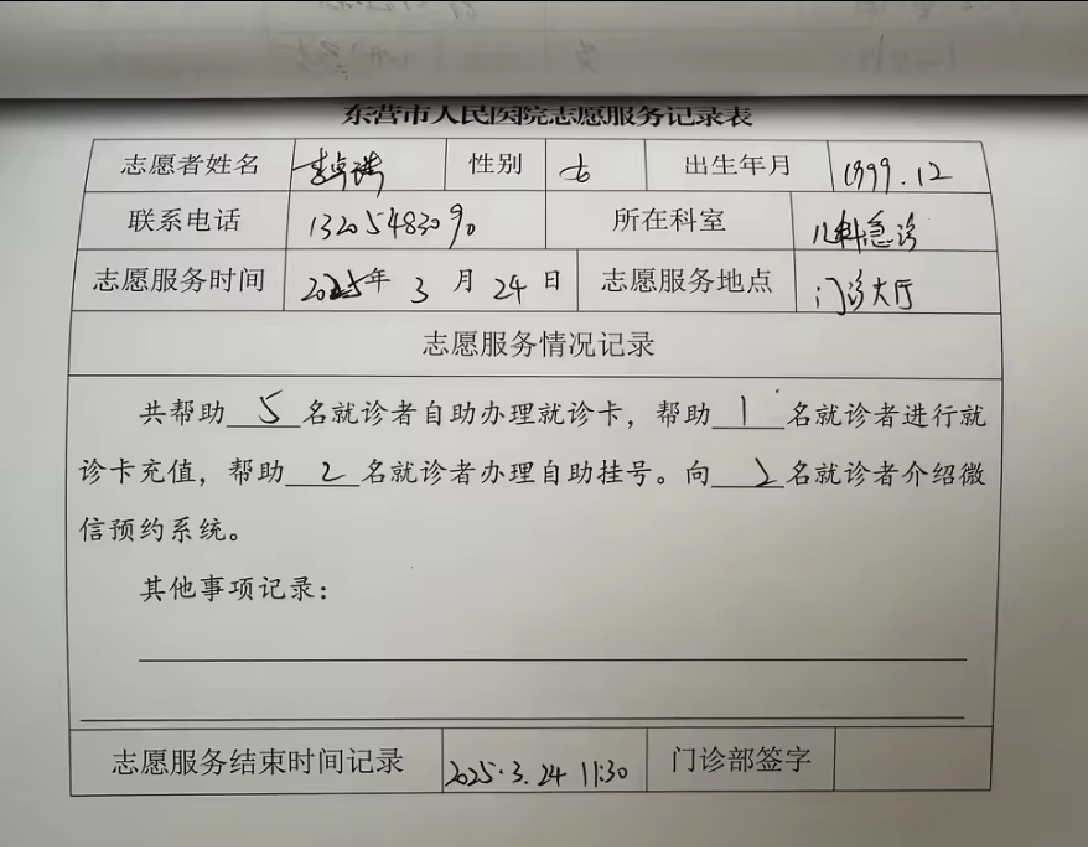 东营市人民医院志愿服务记录表
志愿者姓名 李卓 性别 女 出生年月 1999.12
联系电话 13205483090 所在科室 儿科急诊
志愿服务时间 2025年 3 月 24 日 志愿服务地点 门诊大厅
志愿服务情况记录
共帮助 5 名就诊者自助办理就诊卡，帮助 1 名就诊者进行就
诊卡充值，帮助 2 名就诊者办理自助挂号。向 2 名就诊者介绍微
信预约系统。
其他事项记录：
志愿服务结束时间记录 2025.3.24 11:30 门诊部签字